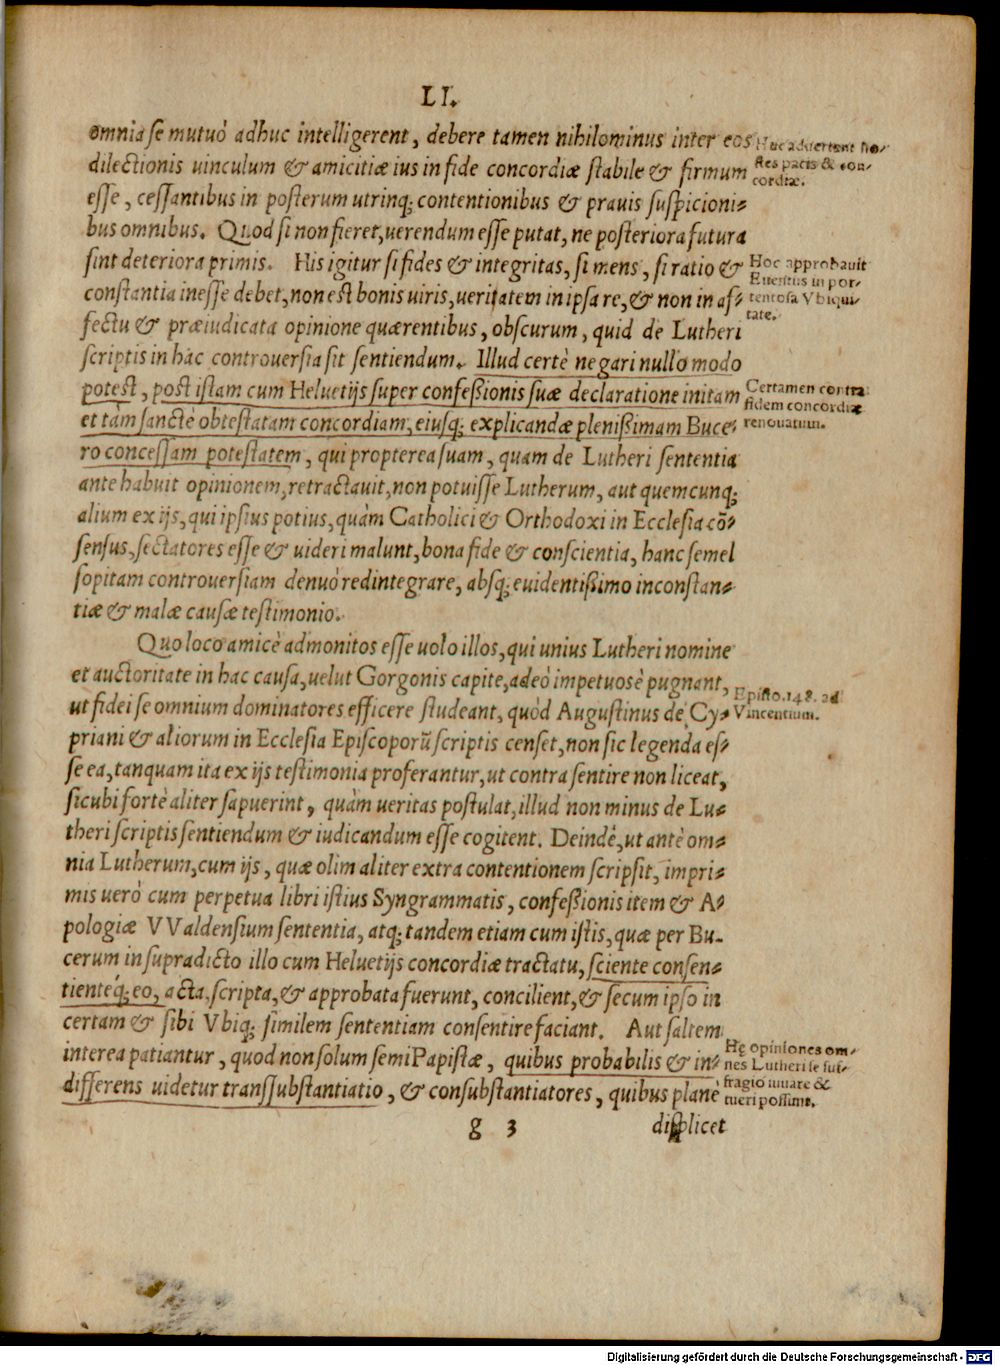 LI.
omnia se mutuò adhuc intelligerent, debere tamen nihilominus inter eos
dilectionis uinculum & amicitiæ ius in fide concordiæ stabile & firmum
esse, cessantibus in posterum utrinq; contentionibus & prauis suspicioni-
bus omnibus. Quod si non fieret, uerendum esse putat, ne posteriora futura
sint deteriora primis. His igitur si fides & integritas, si mens, si ratio &
constantia inesse debet, non est bonis uiris, ueritatem in ipsa re, & non in af-
fectu & præiudicata opinione quærentibus, obscurum, quid de Lutheri
scriptis in hac controuersia sit sentiendum. Illud certè negari nullo modo
potest, post istam cum Heluetijs super confessionis suæ declaratione initam
et tàm sanctè obtestatam concordiam, eiusq; explicandæ plenissimam Buce-
ro concessam potestatem, qui propterea suam, quam de Lutheri sententia
ante habuit opinionem, retractauit, non potuisse Lutherum, aut quemcunq;
alium ex ijs, qui ipsius potius, quàm Catholici & Orthodoxi in Ecclesia cõ-
sensus, sectatores esse & uideri malunt, bona fide & conscientia, hanc semel
sopitam controuersiam denuò redintegrare, absq; euidentissimo inconstan-
tiæ & malæ causæ testimonio.
Quo loco amicè admonitos esse uolo illos, qui unius Lutheri nomine
et auctoritate in hac causa, uelut Gorgonis capite, adeò impetuosè pugnant,
ut fidei se omnium dominatores efficere studeant, quòd Augustinus de Cy-
priani & aliorum in Ecclesia Episcoporũ scriptis censet, non sic legenda es-
se ea, tanquam ita ex ijs testimonia proferantur, ut contra sentire non liceat,
sicubi fortè aliter sapuerint, quàm ueritas postulat, illud non minus de Lu-
theri scriptis sentiendum & iudicandum esse cogitent. Deindè, ut antè om-
nia Lutherum, cum ijs, quæ olim aliter extra contentionem scripsit, impri-
mis uerò cum perpetua libri istius Syngrammatis, confessionis item & A-
pologiæ VValdensium sententia, atq; tandem etiam cum istis, quæ per Bu-
cerum in supradicto illo cum Heluetijs concordiæ tractatu, sciente consen-
tienteq́; eo, acta, scripta, & approbata fuerunt, concilient, & secum ipso in
certam & sibi Vbiq; similem sententiam consentire faciant. Aut saltem
interea patiantur, quod non solum semiPapistæ, quibus probabilis & in-
differens uidetur transsubstantiatio, & consubstantiatores, quibus plane
g 3 displicet
Huc aduertant ho-
stes pacis & con-
cordiæ.
Hoc approbauit
Euentus in por-
tentosa Vbiqui-
tate.
Certamen contra
fidem concordiæ
renouatum.
Episto. 148. ad
Vincentium.
Hę opiniones om-
nes Lutheri se suf-
fragio iuuare &
tueri possunt.
Digitalisierung gefördert durch die Deutsche Forschungsgemeinschaft - DFG